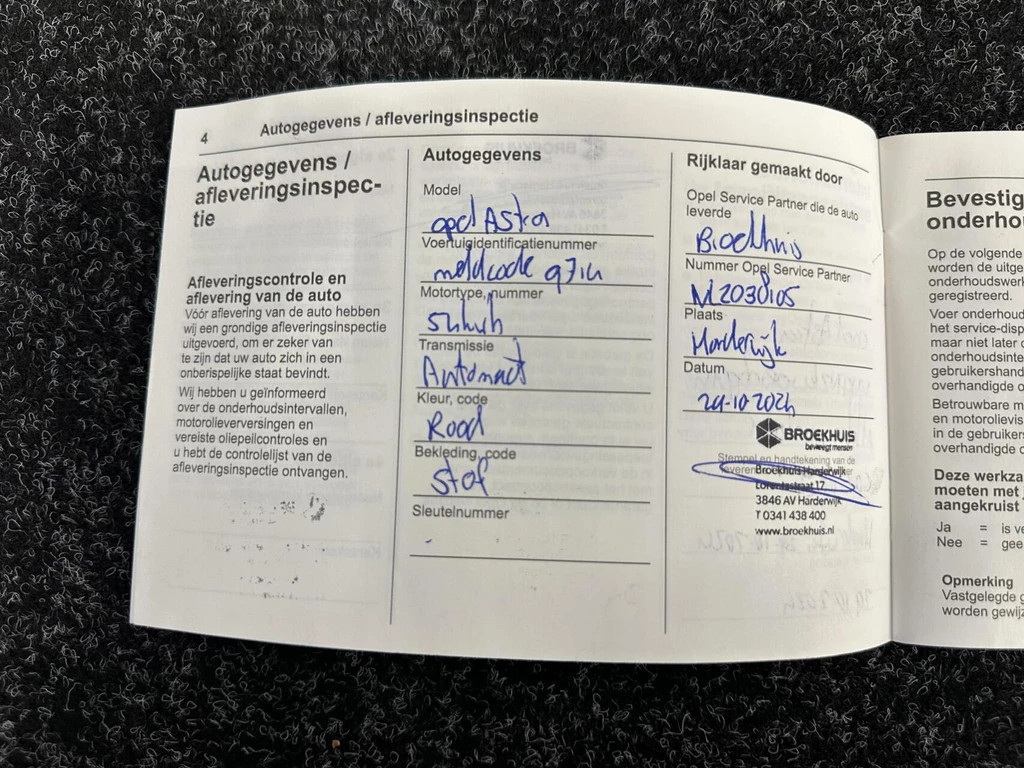 4
Autogegevens / afleveringsinspectie
Autogegevens /
afleveringsinspec-
tie
Afleveringscontrole en
aflevering van de auto
Vóór aflevering van de auto hebben
wij een grondige afleveringsinspectie
uitgevoerd, om er zeker van
te zijn dat uw auto zich in een
onberispelijke staat bevindt.
Wij hebben u geïnformeerd
over de onderhoudsintervallen,
motorolieverversingen en
vereiste oliepeilcontroles en
u hebt de controlelijst van de
afleveringsinspectie ontvangen.
Autogegevens
Model
opel Astra
Voertuigidentificatienummer
meldcode
Motortype, nummer
Transmissie
Automaat
Kleur, code
Rood
Bekleding, code
stof
Sleutelnummer
-
Rijklaar gemaakt door
Opel Service Partner die de auto
leverde
Broekhuis
Nummer Opel Service Partner
NL2038105
Plaats
Harderwijk
Datum
29-10-2024
BROEKHUIS
beweegt mensen
Stempel en handtekening van de
Broekhuis Harderwijk
Lorentzstraat 17
3846 AV Harderwijk
T 0341 438 400
www.broekhuis.nl
Bevestig
onderho
Op de volgende
worden de uitge
onderhoudswerk
geregistreerd.
Voer onderhoud
het service-disp
maar niet later
onderhoudsinte
gebruikershand
overhandigde o
Betrouwbare m
en motorolievis
in de gebruiken
overhandigde o
Deze werkza
moeten met
aangekruist
Ja = is ve
Nee = gee
Opmerking
Vastgelegde g
worden gewijz